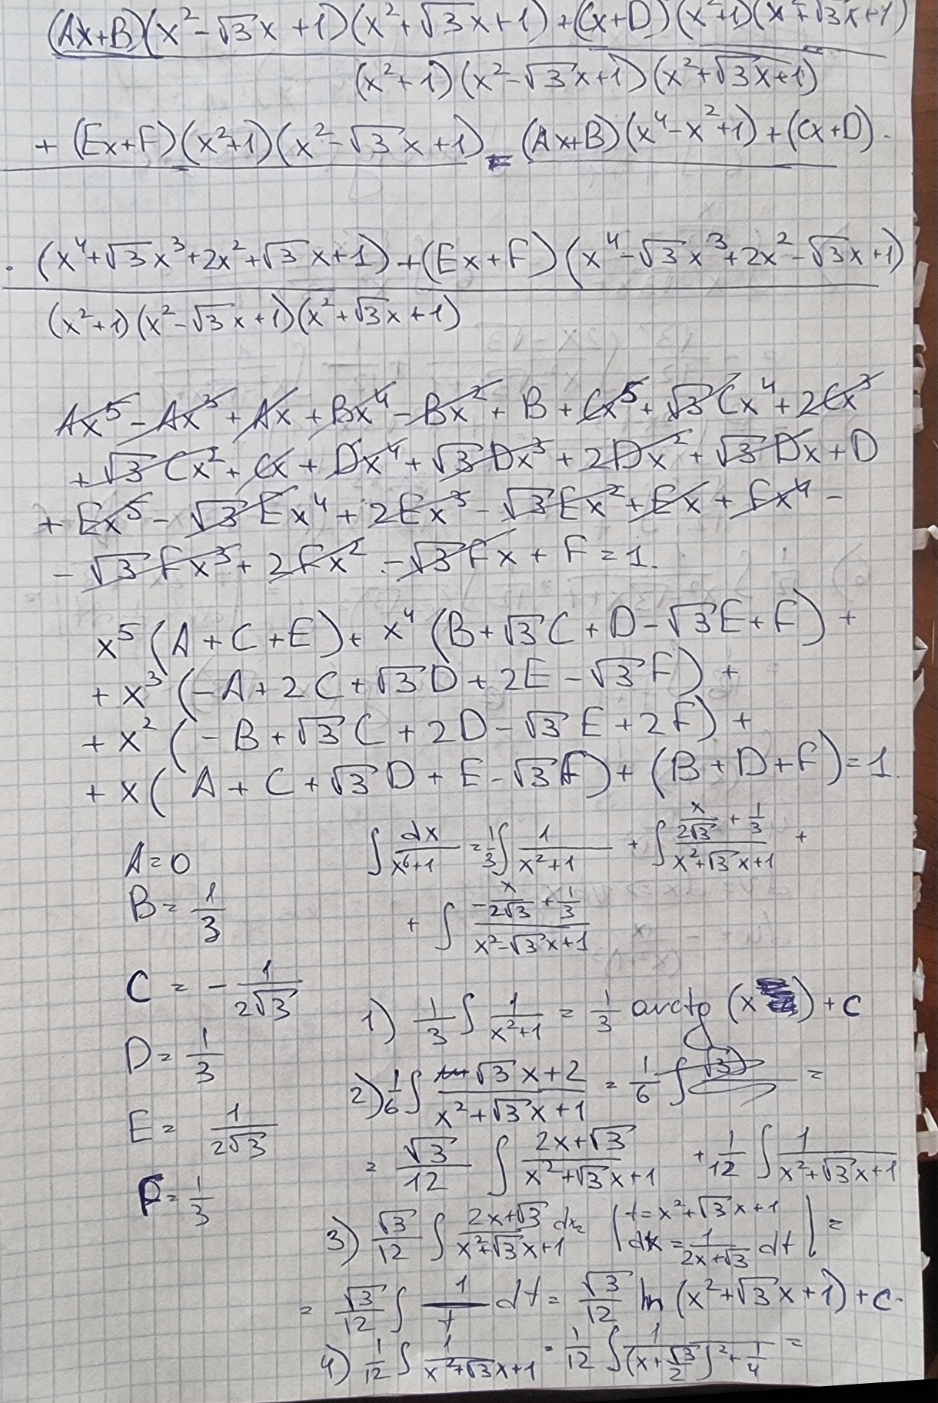 (Ax+B)(x²-√3x+1)(x²+√3x+1)+(Cx+D)(x²+1)(x²+√3x+1)
(x²+1)(x²-√3x+1)(x²+√3x+1)
+ (Ex+F)(x²+1)(x²-√3x+1) = (Ax+B)(x⁴-x²+1)+(Cx+D)·
·(x⁴+√3x³+2x²+√3x+1)+(Ex+F)(x⁴-√3x³+2x²-√3x+1)
(x²+1)(x²-√3x+1)(x²+√3x+1)
Ax⁵-Ax³+Ax+Bx⁴-Bx²+B+Cx⁵+√3Cx⁴+2Cx³
+√3Cx²+Cx+Dx⁴+√3Dx³+2Dx²+√3Dx+D
+Ex⁵-√3Ex⁴+2Ex³-√3Ex²+Ex+Fx⁴-
-√3Fx³+2Fx²-√3Fx+F=1.
x⁵(A+C+E)+x⁴(B+√3C+D-√3E+F)+
+x³(-A+2C+√3D+2E-√3F)+
+x²(-B+√3C+2D-√3E+2F)+
+x(A+C+√3D+E-√3F)+(B+D+F)=1.
A=0
B=1/3
C=-1/(2√3)
D=1/3
E=1/(2√3)
F=1/3
∫dx/(x⁶+1)=1/3∫1/(x²+1) + ∫(x/(2√3)+1/3)/(x²+√3x+1) +
+∫(-x/(2√3)+1/3)/(x²-√3x+1)
1) 1/3∫1/(x²+1) = 1/3 arctg(x)+C
2) 1/6∫(√3x+2)/(x²+√3x+1) = 1/6∫ =
= √3/12 ∫(2x+√3)/(x²+√3x+1) + 1/12∫1/(x²+√3x+1)
3) √3/12 ∫(2x+√3)/(x²+√3x+1) dx= |t=x²+√3x+1
dx=1/(2x+√3) dt| =
= √3/12 ∫1/t dt = √3/12 ln(x²+√3x+1)+C.
4) 1/12∫1/(x²+√3x+1) = 1/12∫1/((x+√3/2)²+1/4) =